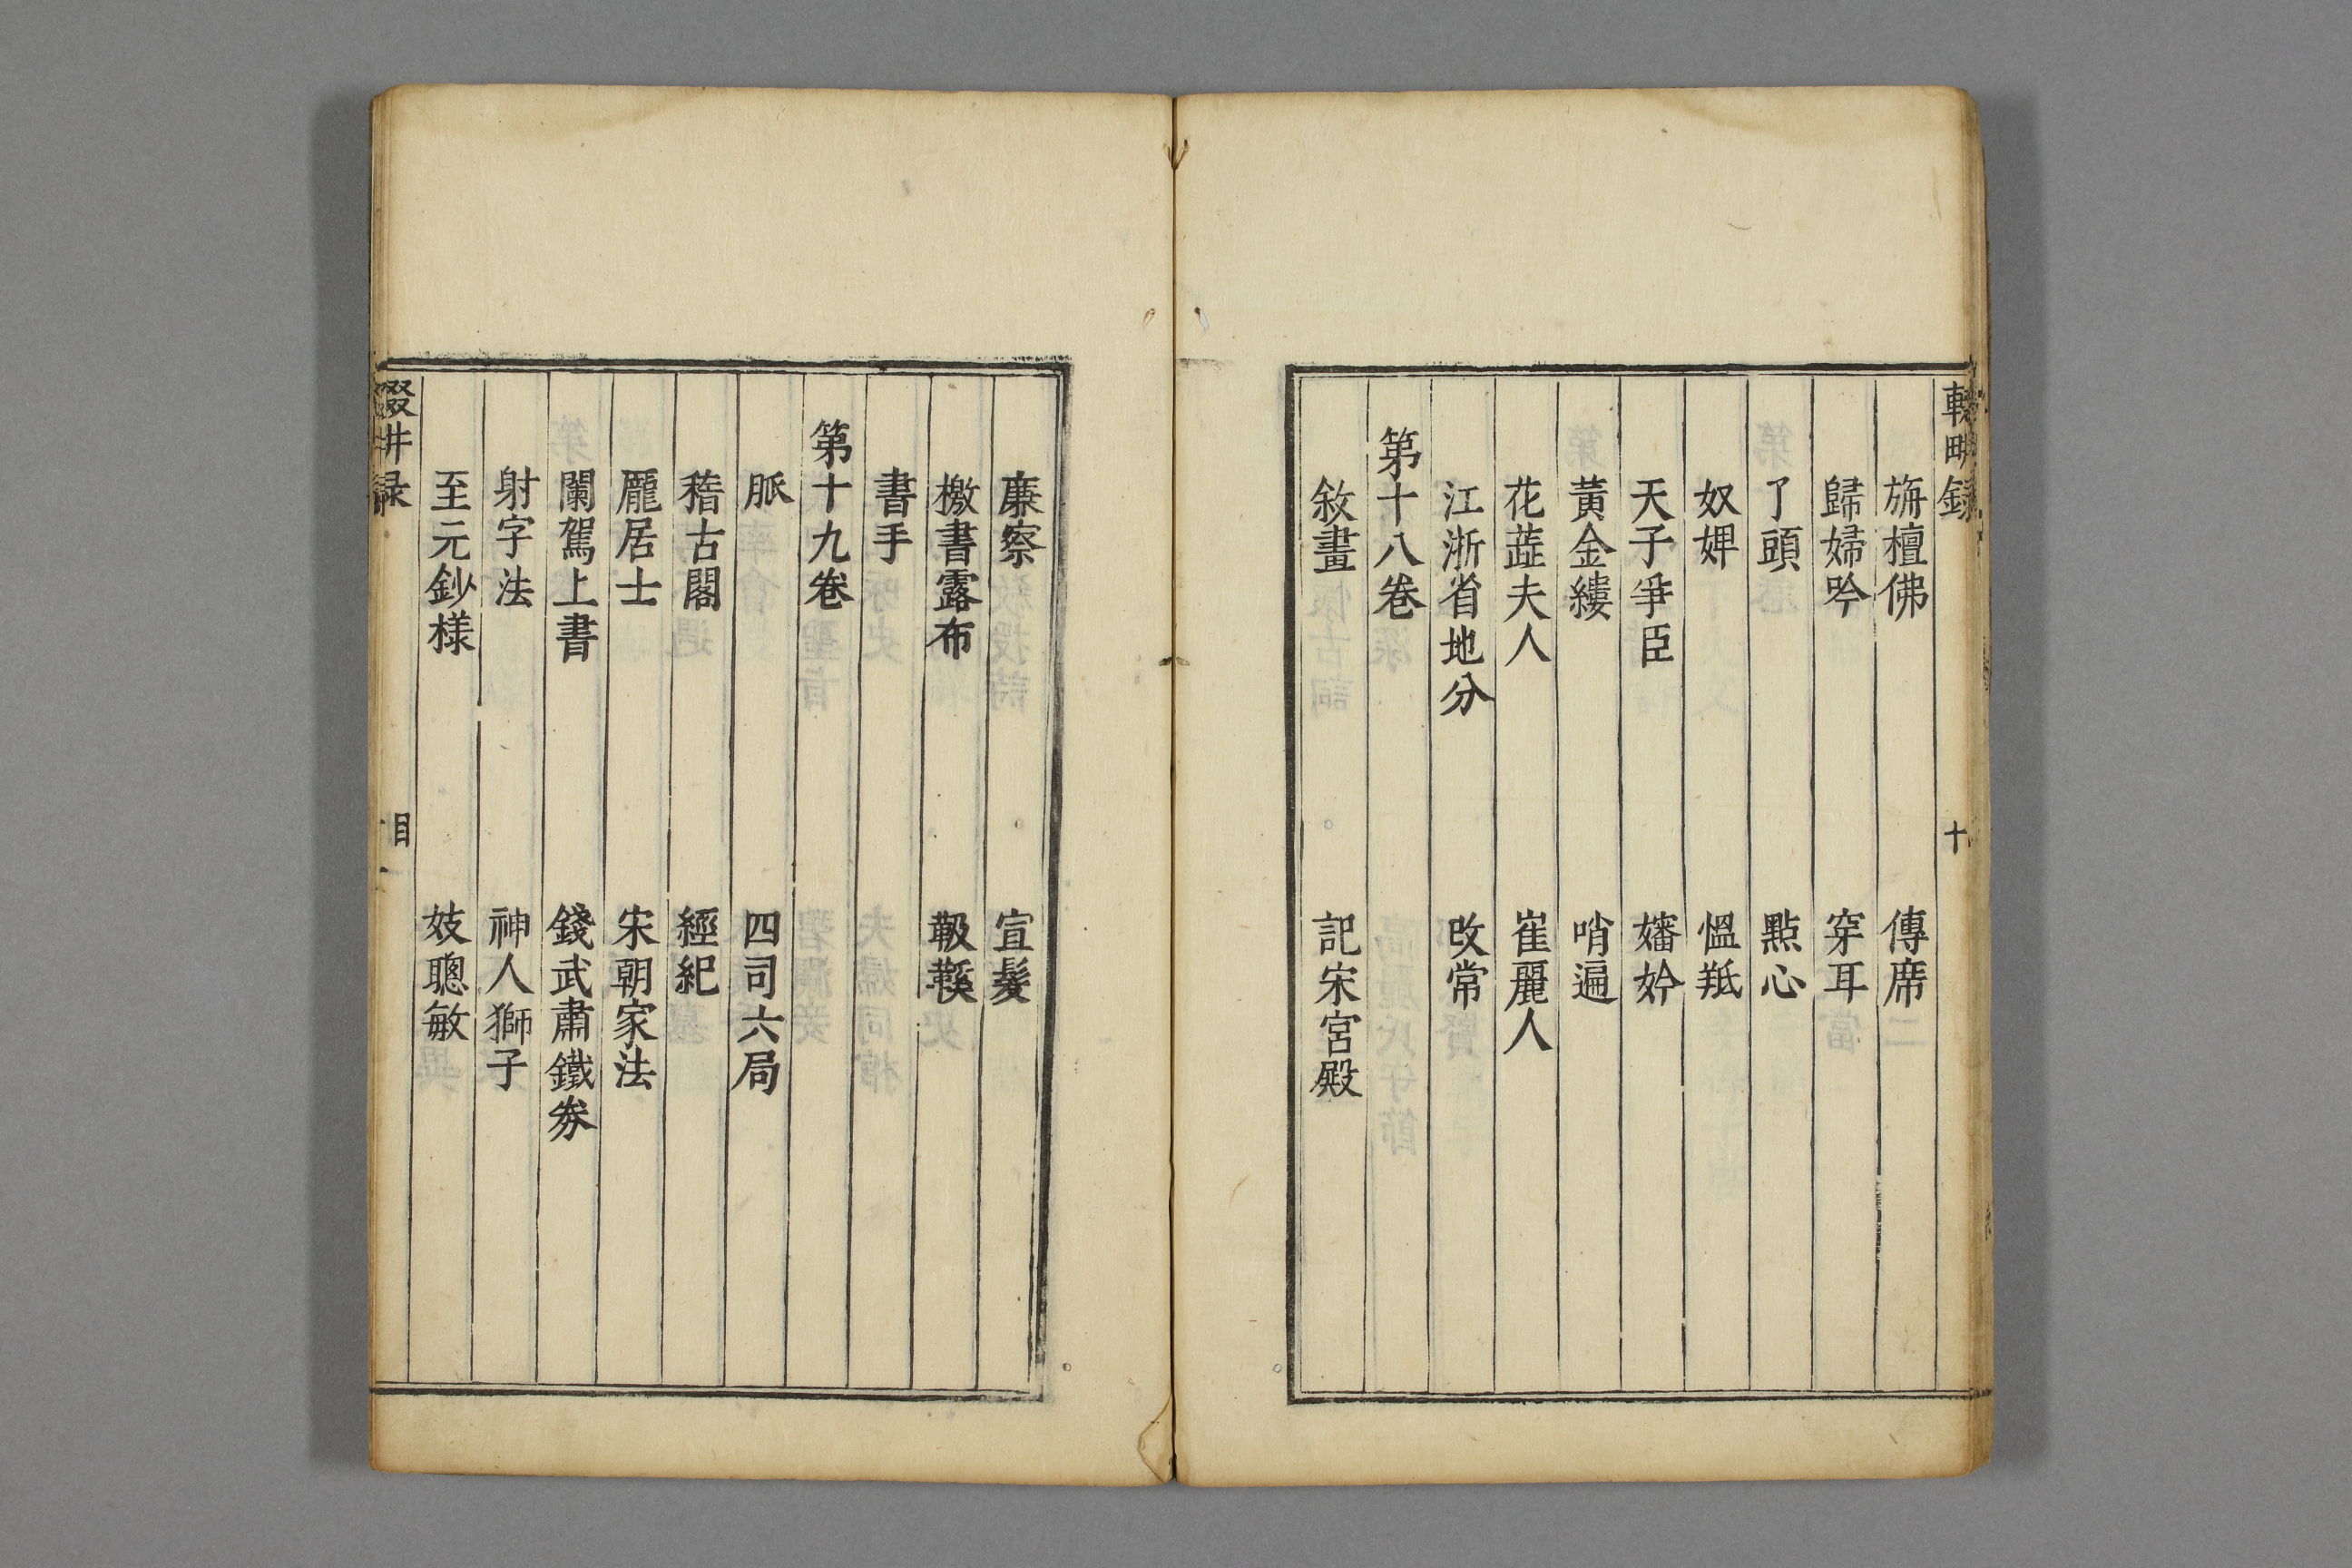 輟畊録
十
旃檀佛　傳席
歸婦吟　穿耳
了頭　點心
奴婢　愠羝
天子爭臣　嬸妗
黃金縷　哨遍
花蕋夫人　崔麗人
江浙省地分　改常
第十八卷
敘畫　記宋宮殿
廉察　宣髮
檄書露布　靸鞵
書手
第十九卷
脈　四司六局
稽古閣　經紀
龐居士　宋朝家法
闌駕上書　錢武肅鐵券
射字法　神人獅子
至元鈔樣　妓聰敏
目